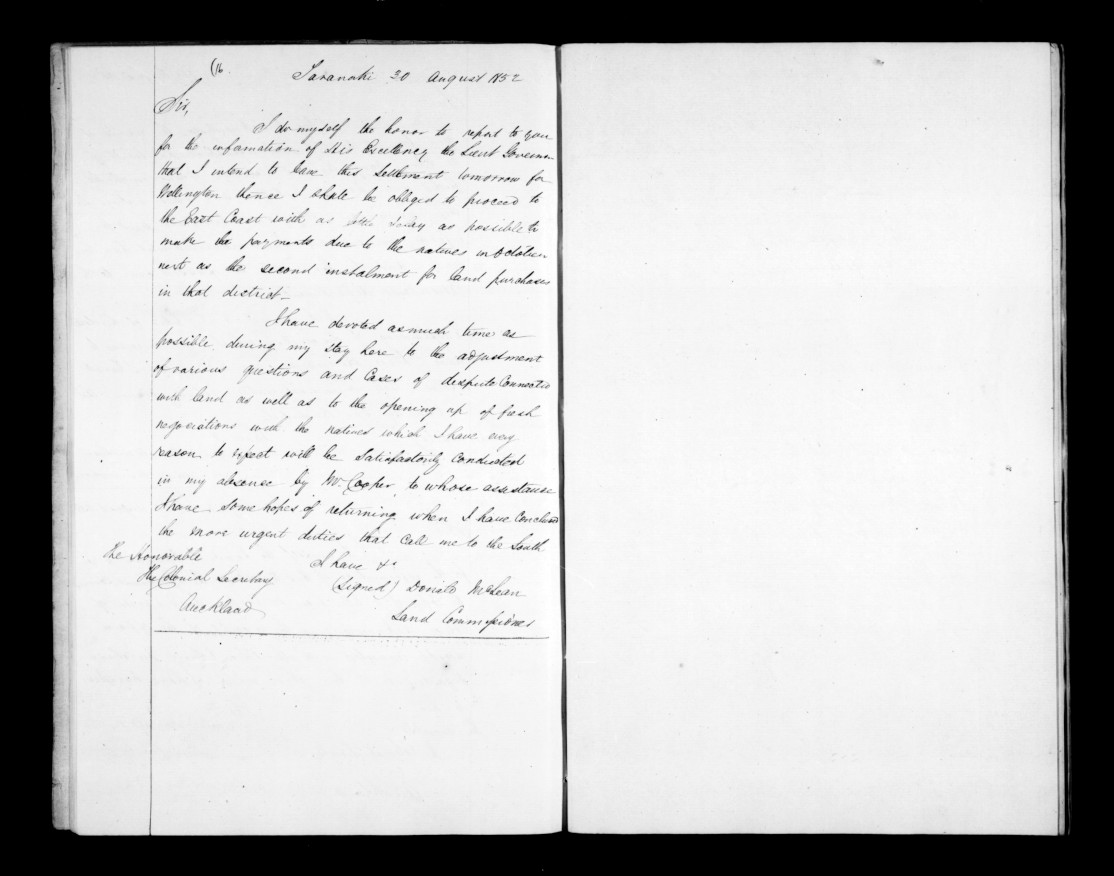 (16
Taranaki 30 August 1852
Sir,
I do myself the honor to report to you
for the information of His Excellency the Lieut Governor
that I intend to leave this Settlement tomorrow for
Wellington thence I shall be obliged to proceed to
the East Coast with as little delay as possible to
make the payments due to the natives in October
next as the second instalment for land purchases
in that district_
I have devoted as much time as
possible during my stay here to the adjustment
of various questions and Cases of dispute Connected
with land as well as to the opening up of fresh
negociations with the natives which I have every
reason to expect will be Satisfactorily Conducted
in my absence by Mr. Cooper, to whose assistance
I have some hopes of returning when I have Concluded
the more urgent duties that Call me to the South.
I have &c
The Honorable
The Colonial Secretary
Auckland
(Signed) Donald McLean
Land Commissioner